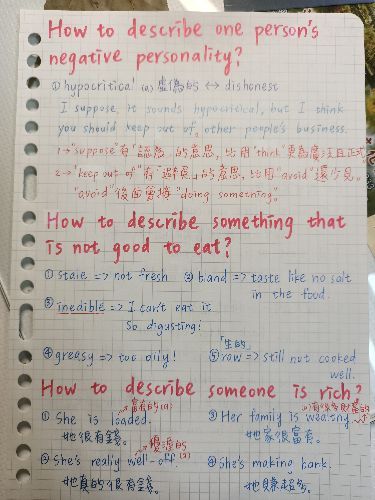 How to describe one person's
negative personality?
① hypocritical (a) 虛偽的 ↔ dishonest
I suppose, it sounds hypocritical, but I think
you should keep out of other people's business.
1→ "suppose" 有 "認為" 的意思, 比用 "think" 更為廣泛且正式
2→ "keep out of" 有 "避免" 的意思, 比用 "avoid" 還少見。
"avoid" 後面會接 "doing something"。
How to describe something that
is not good to eat?
① stale => not fresh ② bland => taste like no salt
in the food.
③ inedible => I can't eat it
So digusting!
「生的」
④ greasy => too oily! ⑤ raw => still not cooked
well.
How to describe someone is rich?
富有的 (a)
① She is loaded. ③ Her family is wealthy
她很有錢。 她家很富有。
優渥的 (a)
② She's really well-off. ④ She's making bank.
她真的很有錢。 她賺超多。